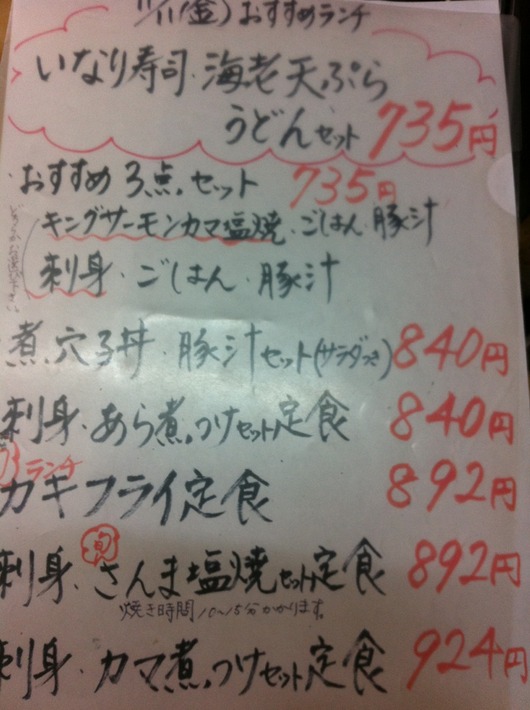 11/11(金)おすすめランチ
いなり寿司・海老天ぷら
うどんセット 735円
おすすめ3点セット 735円
キングサーモンカマ塩焼・ごはん・豚汁
刺身・ごはん・豚汁
どちらかお選び下さい
煮穴子丼・豚汁セット(サラダつき) 840円
刺身・あら煮つけセット定食 840円
ランチ
カキフライ定食 892円
旬
刺身・さんま塩焼セット定食 892円
焼き時間10〜15分かかります。
刺身・カマ煮つけセット定食 924円